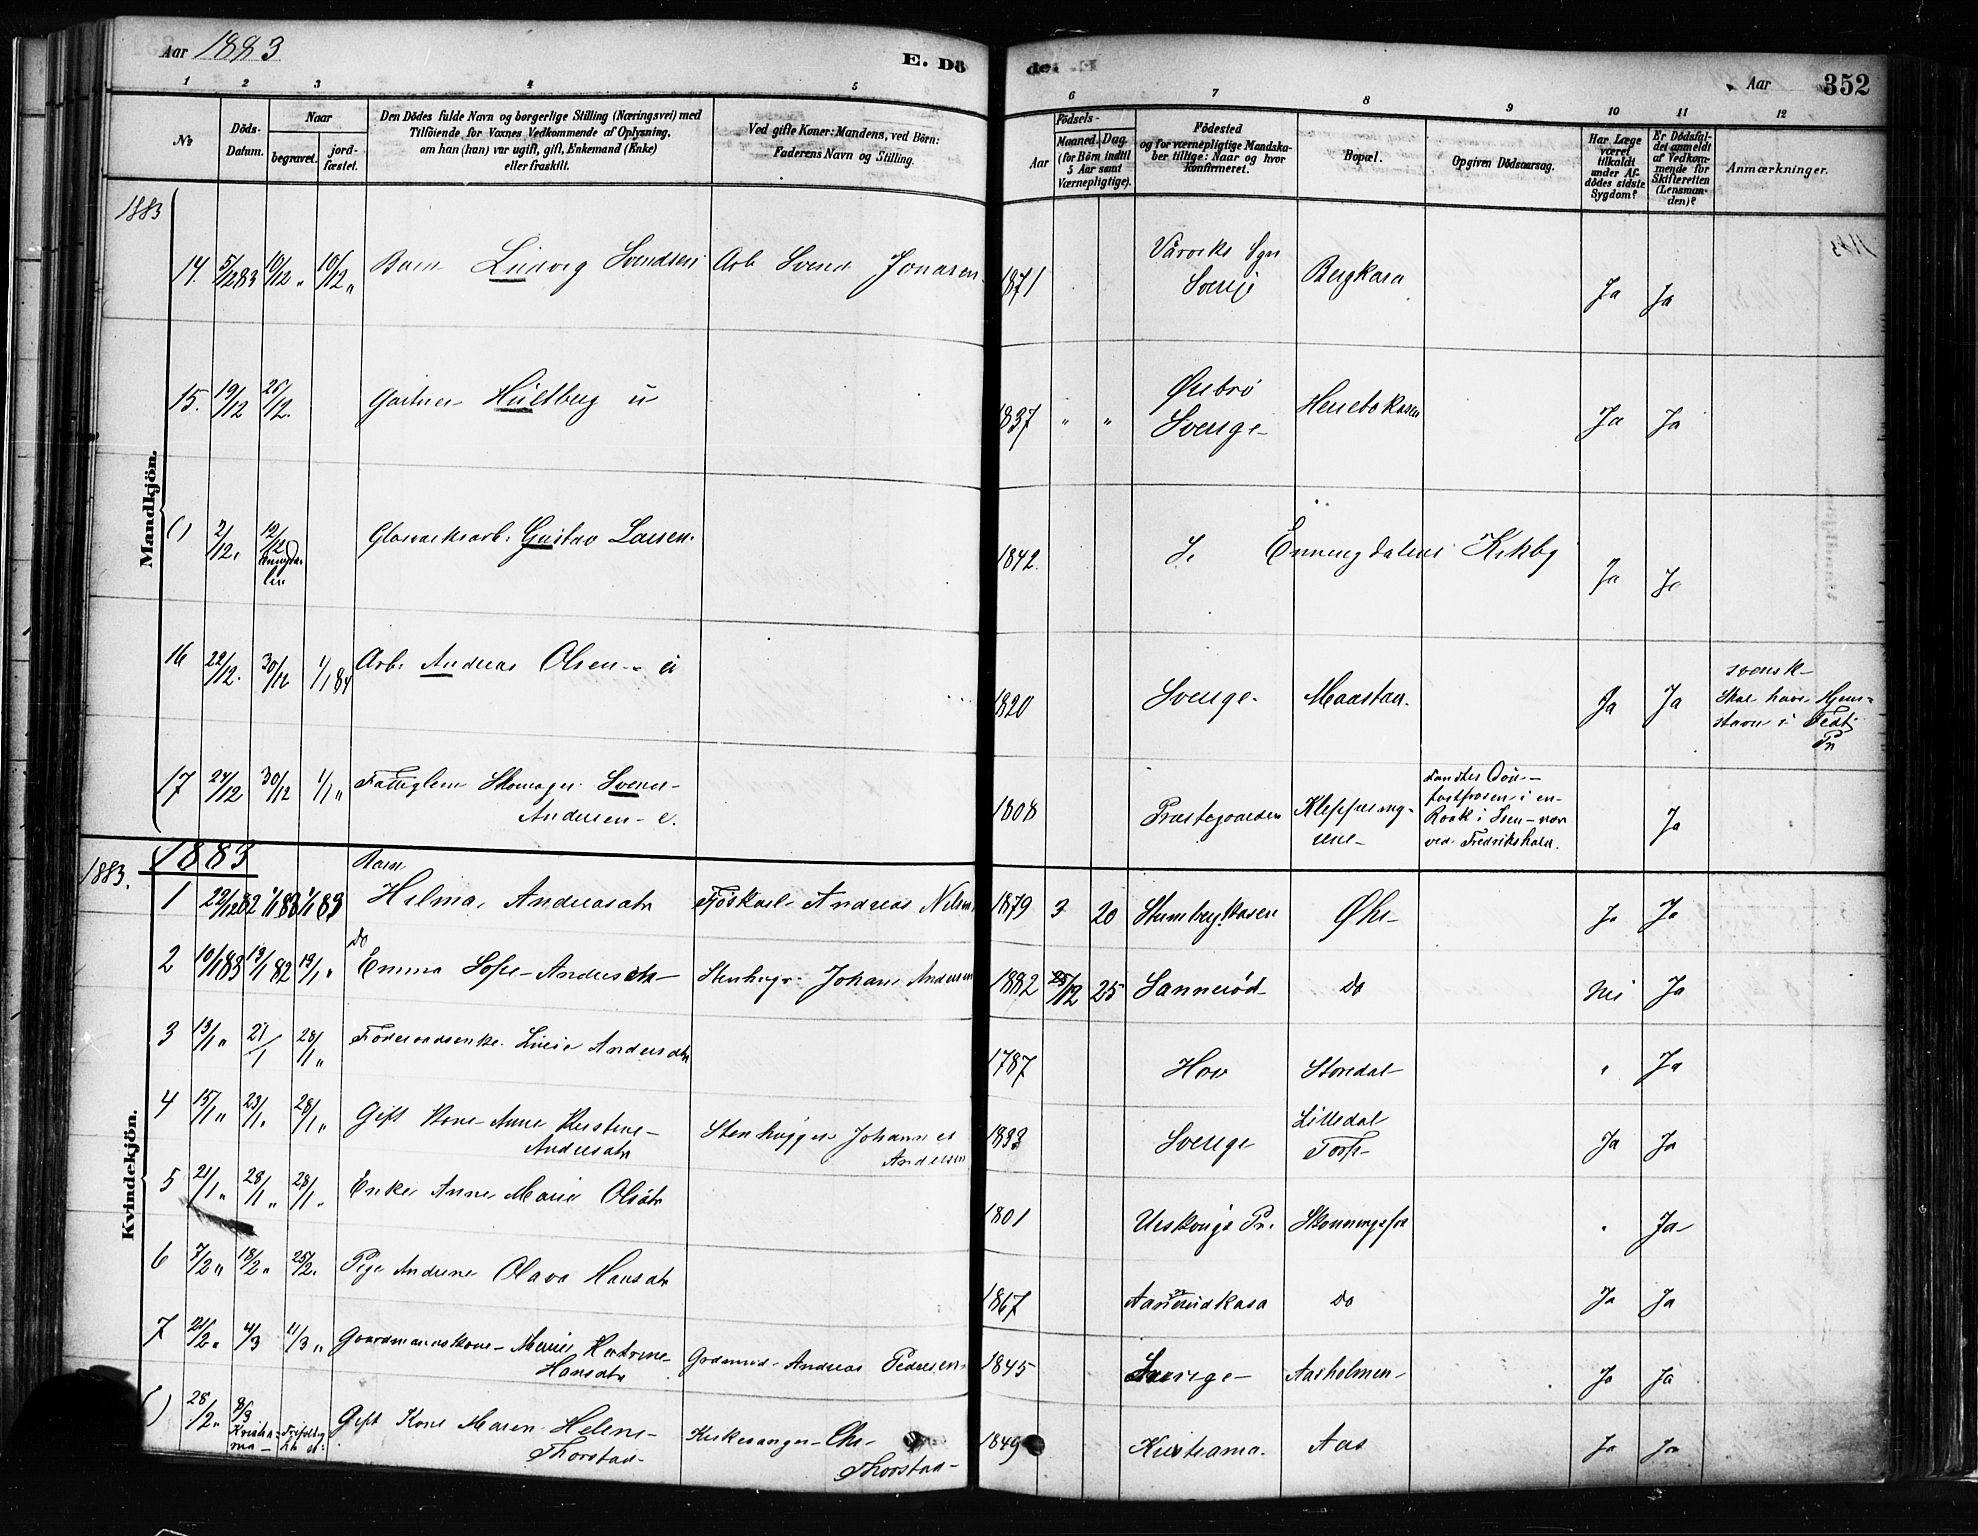 Aar 1883
E. Dö
de: E.
Aar
352
1 2 3 4 5 6 7 8 9 10 11 12
№
Döds-
Datum.
Naar
begravet.
jord-
fæstet.
Den Dödes fulde Navn og borgerlige Stilling (Næringsvei) med
Tilföiende, for Voxnes Vedkommende af Oplysning,
om han (hun) var ugift, gift, Enkemand (Enke)
eller fraskilt.
Ved gifte Koner: Mandens, ved Börn:
Faderens Navn og Stilling.
Födsels-
Aar
Maaned. Dag.
(for Börn indtil
5 Aar samt
Værnepligtige).
Födested
og for værnepligtige Mandska-
ber tillige: Naar og hvor
konfirmeret.
Bopæl.
Opgiven Dödsaarsag.
Har Læge
været
tilkaldt
under Af-
dödes sidste
Sygdom?
Er Dödsfal-
det anmeldt
af Vedkom-
mende for
Skifteretten
(Lensman-
den)?
Anmærkninger.
Mandkjön.
1883
14. 5/12 83 10/12 " 16/12 " Barn Ludvig Svendsen Arb Svend Jonasen 1871 Sverige Bergkasa Ja Ja
15. 19/12 26/12. Gartner Hultberg u 1837 " " Örebro
Sverige Ja Ja
() 2/12. 12/12 Glasværksarb. Gustav Larsen. 1842. Enningdalens Kirkby Ja Ja
16 22/12. 30/12 1/1 84 Arb. Andreas Olsen u 1820 Sverige. Maastad. Ja Ja svensk
Skal have Hjem-
stavn i
17 24/12 30/12 1/1 " Fattiglem Skomager Svend
Andersen e. 1808 Præstegaarden
i en
ved Fredrikshald. Ja
Kvindekjön.
1883. 1883
1 22/12 82 1/1 83 1/1 83 Barn
Helma Andreasdtr Andreas Nilsen 1879 3 20 Öhr Ja Ja
2 10/1 83 19/1 82 19/1 " do
Emma Sofie Andersdtr Stenhugr. Johan Andersen 1882 12 25 Sanneröd do Nei Ja
3 13/1 " 21/1 28/1 " Föderaadsenke Andersdtr 1787 Hov Storedal " Ja
4 15/1 " 23/1. 28/1 " Gift Kone Anne Kirstine
Andersdtr Stenhugger Johannes
Andersen 1833 Sverige Lilledal
Torp Ja Ja
5 21/1 " 28/1 " 28/1 " Enke Anne Marie Olsdtr 1801 Urskougs Pr. " Ja
6 7/2 " 18/2 " 25/2. Pige Andrine Olava Hansdtr 1867 do Ja Ja
7 4/3 11/3 " Gaardmandskone Marie Katrine
Hansdtr Andreas Pedersen 1845 Sverige Aasholmen Ja Ja
() 28/2 " 8/3
Kristia-
nia Gift Kone Maren Helene
Thorstad Kirkesanger Chr.
Thorstad 1849 Kristiania. Aas Ja Ja